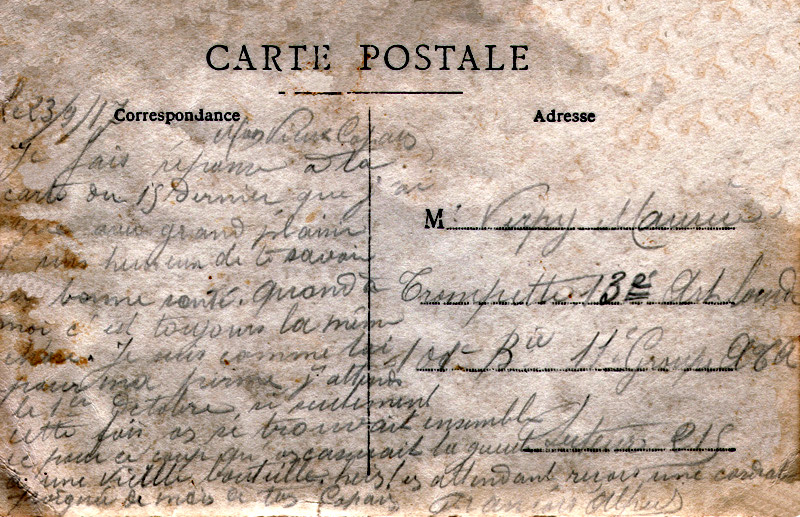 CARTE POSTALE
Correspondance
Adresse
Le 23/9/17
Mon Vieux Copain
Je fais réponse à ta
carte du 15 Dernier que j'ai
avec grand plaisir
Je suis heureux de te savoir
en bonne santé. Quand à
moi c'est toujours la même
chose. Je suis comme toi
pour une perme j'attends
le 1er Octobre, si seulement
cette fois on se trouvait ensemble
ce pour ce coup qu'on casserait la gueule
à une vieille bouteille. en attendant reçois une cordiale
poignée de mains de ton Copain
Alfred
M. Verpy Maurice
Trompette 13e Art Lourde
Bie 11e Groupe
Secteur 215